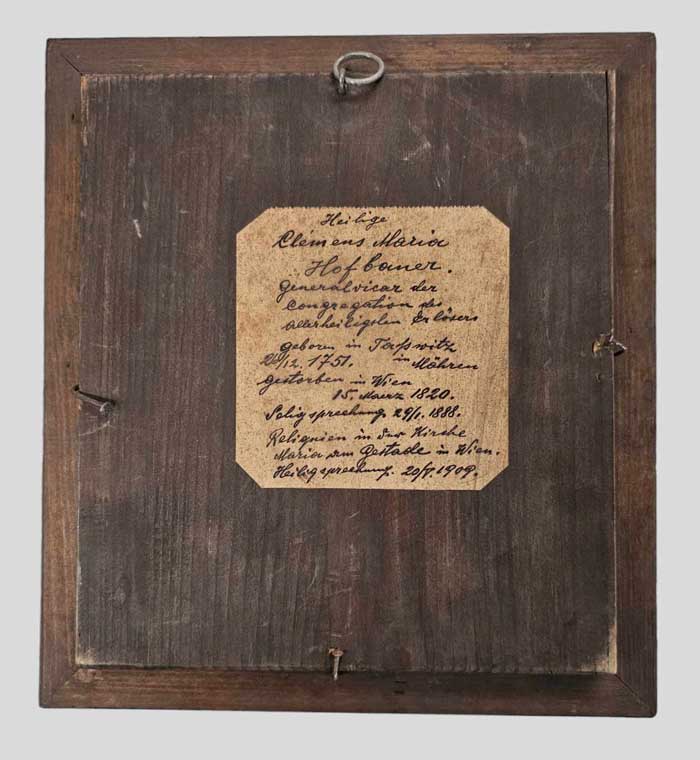 Heilige
Clémens Maria
Hofbauer.
Generalvicar der
Congregation des
allerheiligsten Erlösers
geboren in Taßwitz
26/12. 1751. in Mähren
gestorben in Wien
15. Maerz 1820.
Seligsprechung 29/1. 1888.
Reliquien in der Kirche
Maria am Gestade in Wien.
Heiligsprechung. 20/5. 1909.